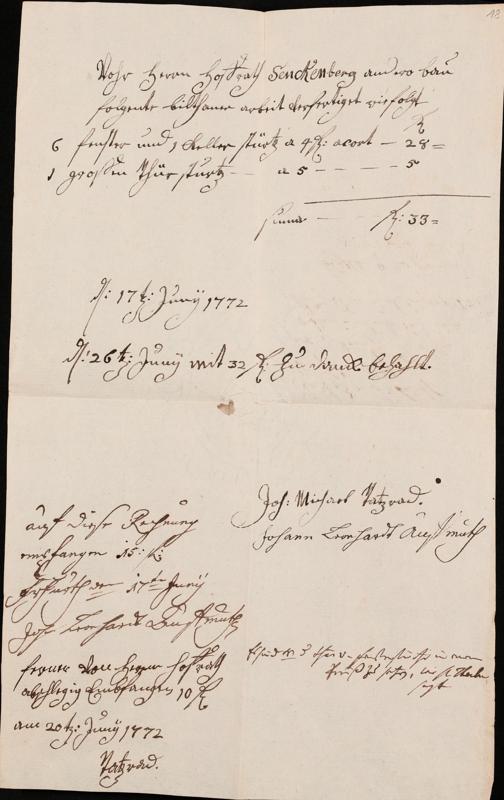 12
Vohr Herrn Hoffrath Senckenberg an dero bau
folgente bilthauer arbeit verfertiget wie folgt
fl
6 fenster und 1 Keller stürtz a 4 fl: acort — 28 =
1 grossen thür sturtz — a 5 — — — 5
suma — fl: 33 =
d: 17t: Junÿ 1772
d: 26t: Junÿ mit 32 fl zu danck bezahlt.
Joh: Michael Datzrad.
Johann Leonhardt Aufmuth
auf diese Rechnung
empfangen 15: fl:
den 17ten Junÿ
Joh Leonhardt Aufmuth
ferner von Herrn Hoffrath
abschlegig Embfangen 10 fl
am 20t: Junÿ 1772
Datzrad.